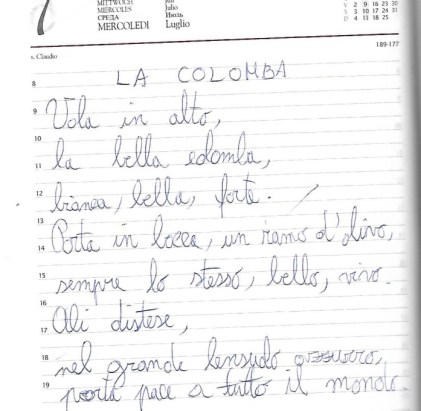 7
MITTWOCH
MIÉRCOLES Julio
СРЕДА Июль
MERCOLEDÌ Luglio
V 2 9 16 23 30
S 3 10 17 24 31
D 4 11 18 25
s. Claudio 189-177
8 LA COLOMBA
9 Vola in alto,
10
11 la bella colomba,
12 bianca, bella, forte.
13
14 Porta in bocca, un ramo d'olivo,
15 sempre lo stesso, bello, vivo.
16
17 Ali distese,
18 nel grande azzurro,
19 porta pace a tutto il mondo.